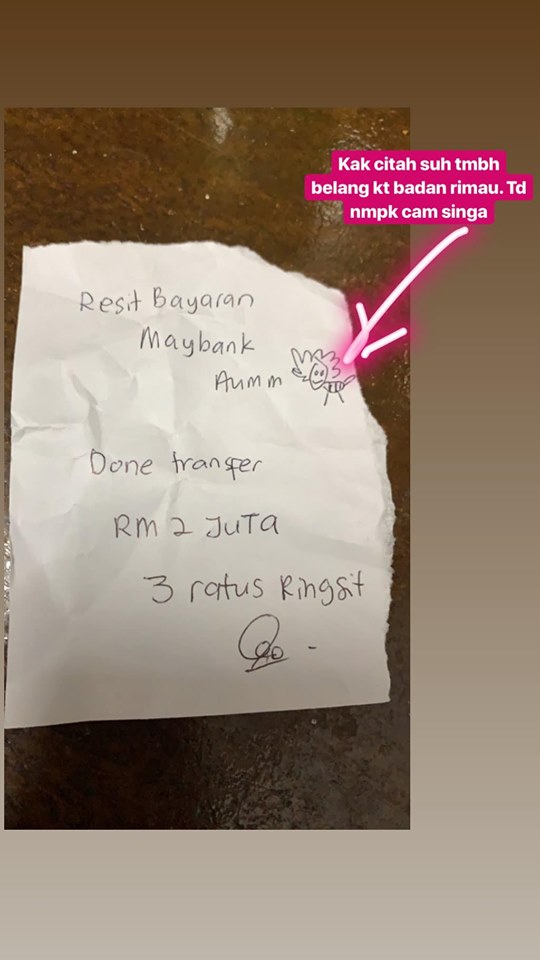 Kak citah suh tmbh
belang kt badan rimau. Td
nmpk cam singa
Resit Bayaran
Maybank
Aumm
Done tranfer
RM 2 JUTA
3 ratus Ringgit